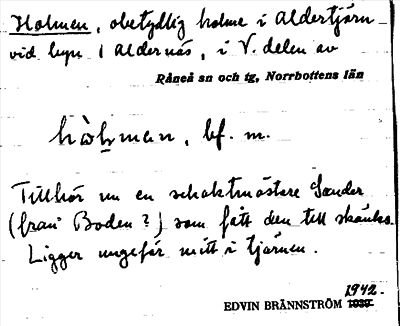 Holmen, obetydlig holme i Aldertjärn
vid byn i Aldernäs, i V. delen av
Råneå sn och tg, Norrbottens län
hòlman, bf. m.
Tillhör nu en schaktmästare Sander
(från Boden?) som fått den till skänks.
Ligger ungefär mitt i tjärnen.
1942.
EDVIN BRÄNNSTRÖM 1939